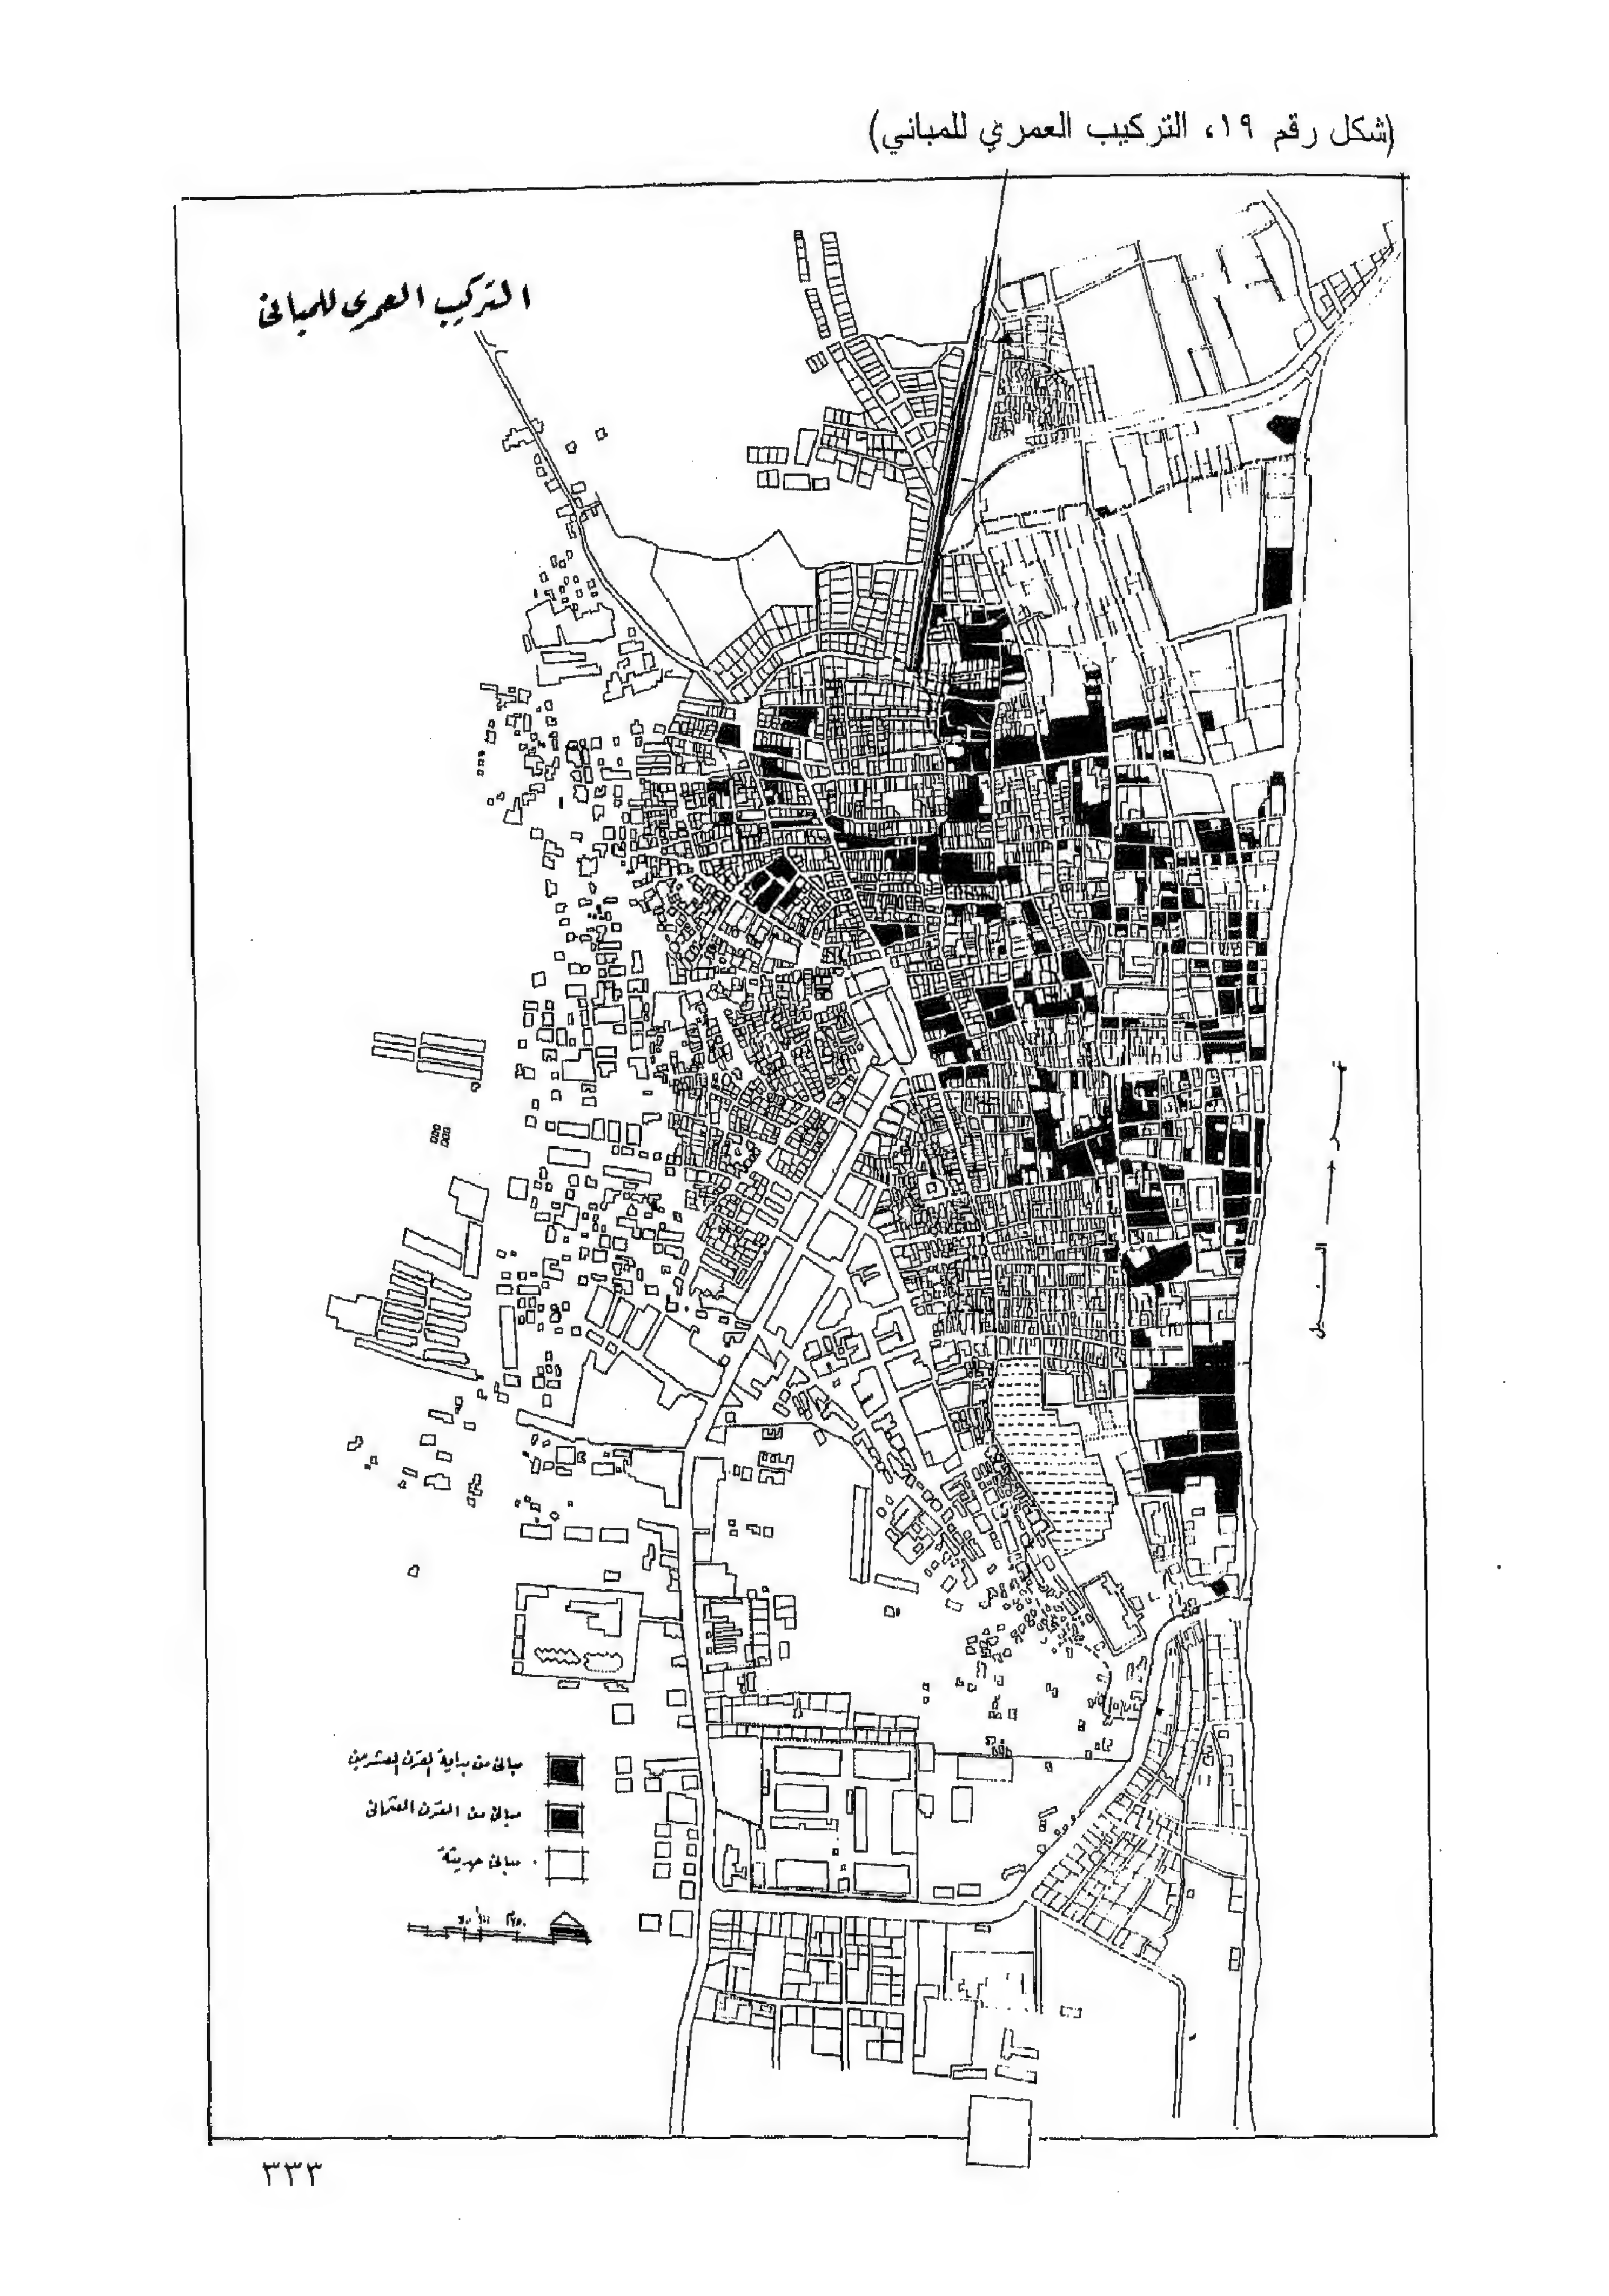 (شكل رقم ١٩، التركيب العمري للمباني)
التركيب العمرى للمبانى
نهر النيل
مبانى من بداية القرن العشرين
مبانى من القرن العثمانى
مبانى حديثة
٣٣٣